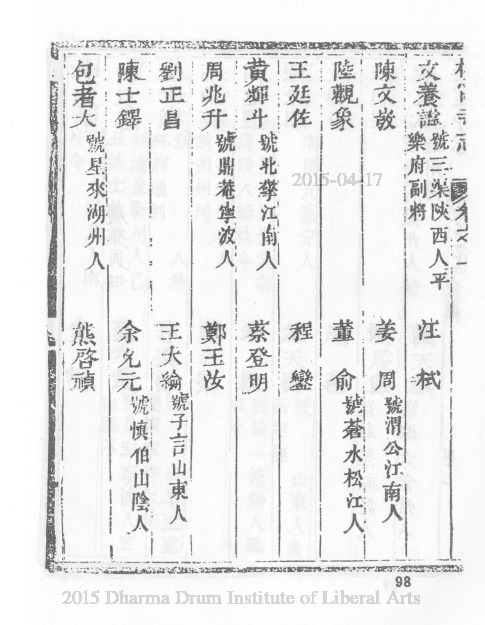 文養謐 號三吳陝西人平樂府副將 汪栻
陳文敬 姜周 號渭公江南人
陸觀象 董俞 號蒼水松江人
王廷佐 程鑾
黃輝斗 號北拏江南人 蔡登明
周兆升 號鼎菴寧波人 鄭王汝
劉正昌 王大綸 號子言山東人
陳士鐸 余允元 號慎伯山陰人
包者大 號星來湖州人 熊啓禎
2015-04-17
98
2015 Dharma Drum Institute of Liberal Arts